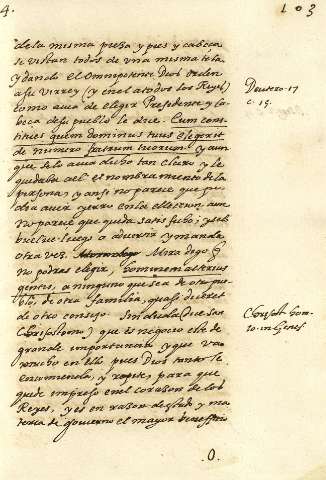 4.
103
de la misma pieza, y pies y cabeça
se vistan todos de vna misma tela
y dando el Omnipotente Dios orden
a su virrey (y en el a todos los Reyes)
como aura de elegir Presidente y ca-
beca de su pueblo le dice. Cum cons-
titues quem dominus tuus elegerit
de numero fratrum tuorum y aun
que lo auia dicho tan claro y le
quedaba a el el nombramiento de la
persona, y ansi no parece que po-
dia auer yerro en la election aun
no parece que queda satisfecho; y sel
buelue luego a aduertir y manda
otra vez. Mira digo q
no podras elegir, hominem alterius
gentis, a ninguno que sea de otro pue-
blo, de otra familia, quasi diceret
de otro consejo. Sin duda (dice San
Chrisostomo) que es negocio este de
grande importancia y que va
mucho en ello pues Dios tanto le
encomienda, y repite, para que
quede impreso en el corazon de los
Reyes, y es en razon de estado y ma-
teria de gouierno el mayor
.0.
Deutero 17
c. 15.
Chrisost. hom-
in Genes